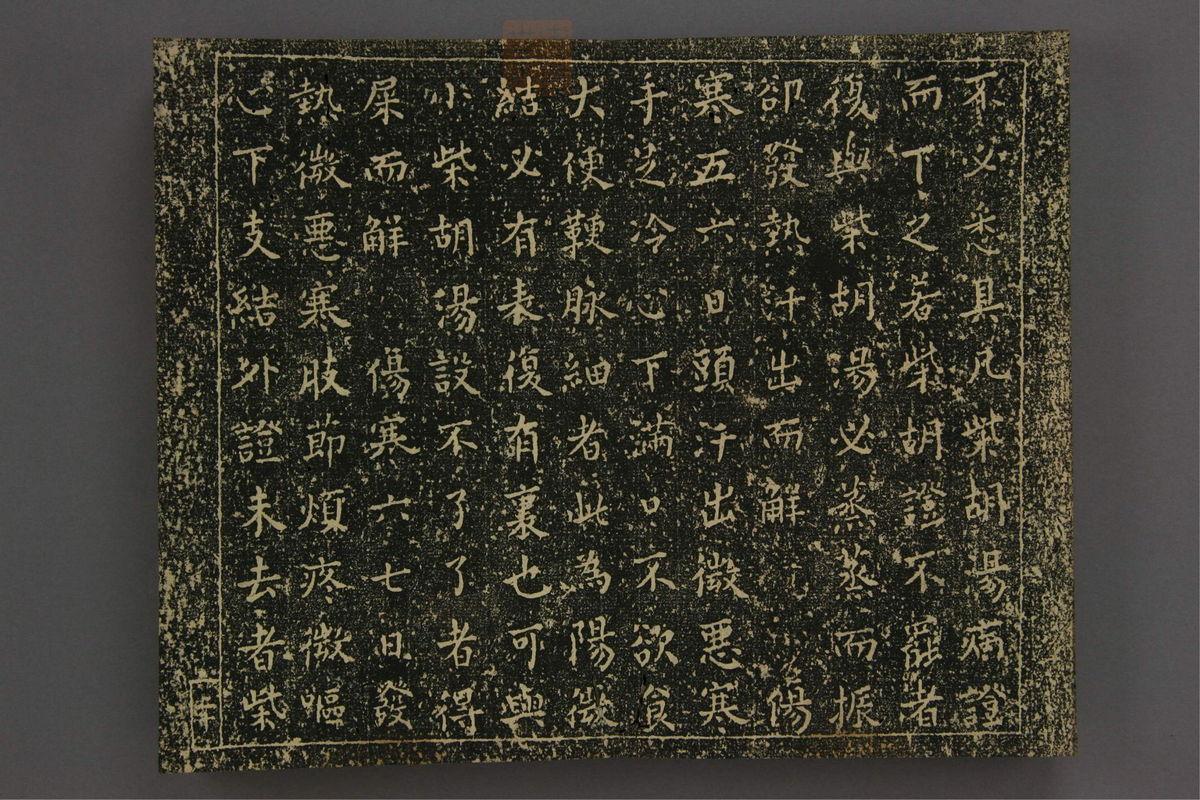 不必悉具凡柴胡湯病證
而下之若柴胡證不罷者
復與柴胡湯必蒸蒸而振
卻發熱汗出而解　傷
寒五六日頭汗出微惡寒
手足冷心下滿口不欲食
大便鞕脉細者此為陽微
結必有表復有裏也可與
小柴胡湯設不了了者得
屎而解　傷寒六七日發
熱微惡寒肢節煩疼微嘔
心下支結外證未去者柴